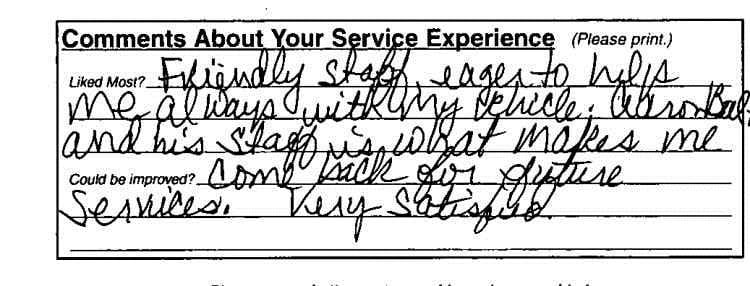 Comments About Your Service Experience (Please print.)
Liked Most? Friendly staff, eager to help
me always with my vehicle. Aaron
and his staff is what makes me
Could be improved? come back for future
services. Very Satisfied.